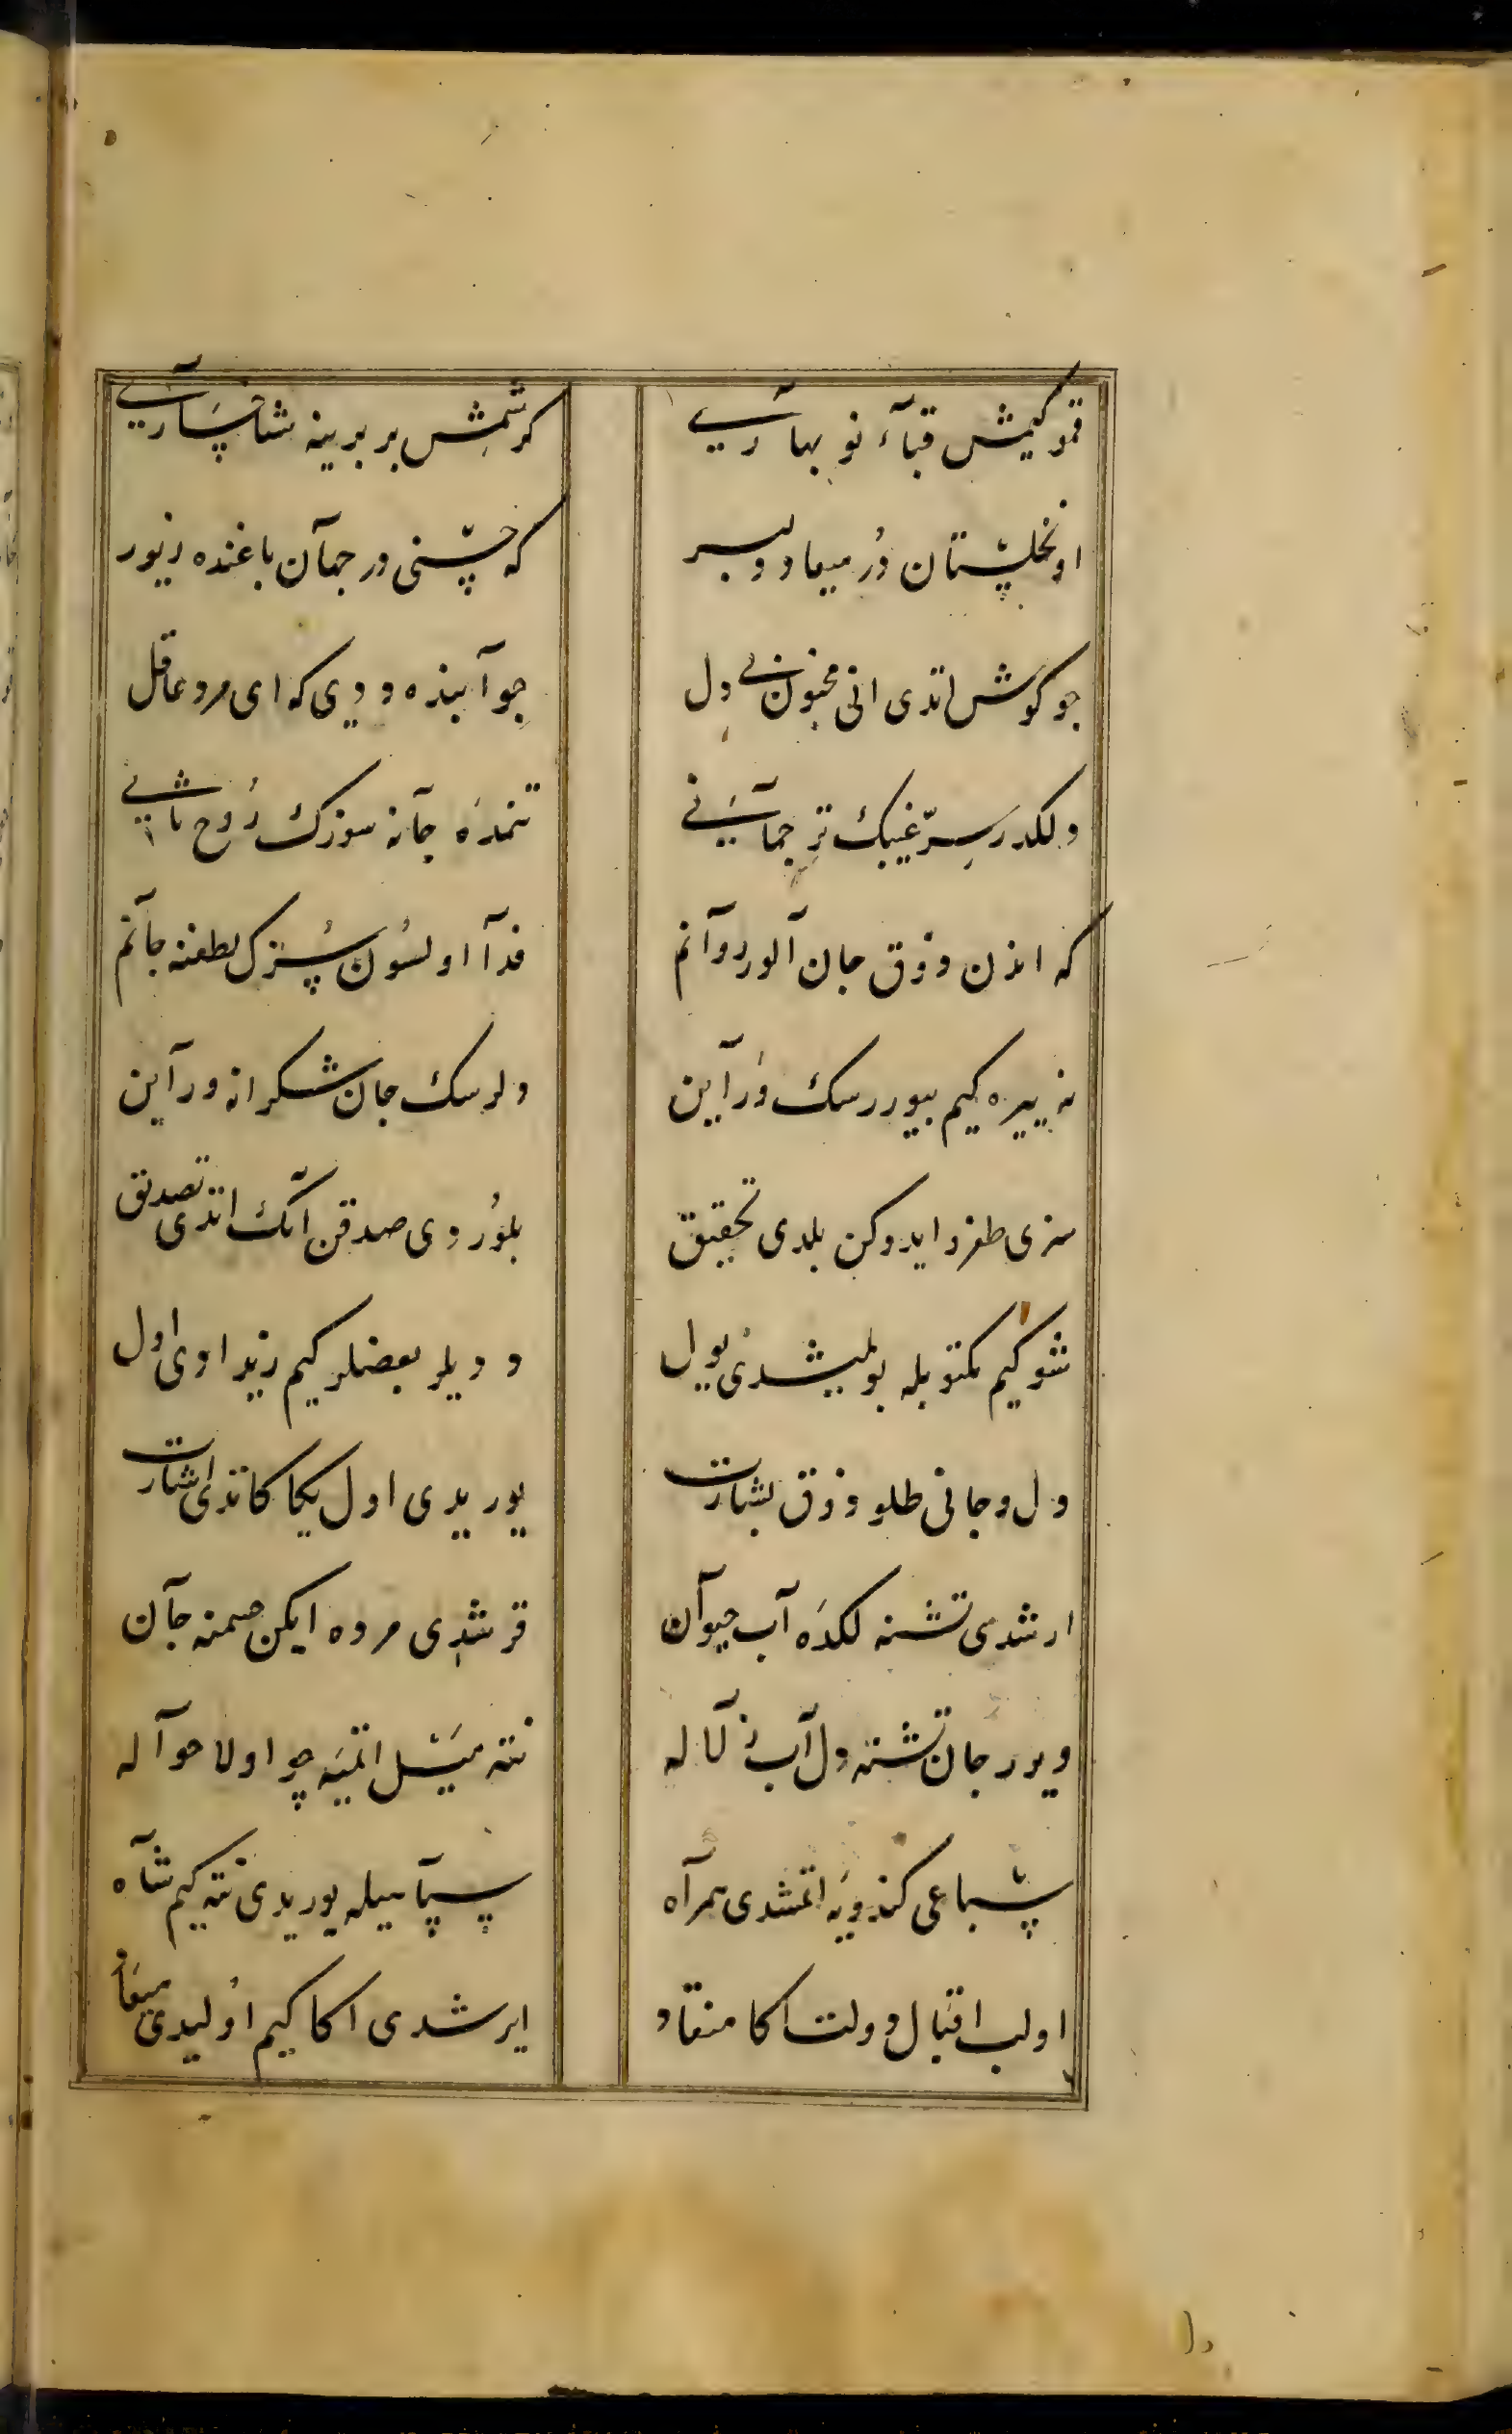 قمو کیمش قباء نو بهاری کرشمش بر برینه شاخساری
اونخلستان در میعاد دلبر که حسنی در جهان باغنده زیور
چو کوش اتدی انی مجنون بی دل جوابنده ددی که ای مرد عاقل
دلکدر سر غیبک ترجمانی تنمده جانه سوزک روح ثانی
که اندن ذوق جان آلور روانم فدا اولسون سوزک لطفنه جانم
نه ییره کیم بیوررسک ورآین دلرسک جان شکرانه ورآین
سزی طفرد ایدوکن بلدی تحقیق بلوردی صدقن آنک اتدی تصدیق
شو کیم مکتوبله بولمیشدی یول ددیلر بعضلر کیم زید اوی اول
دل و جانی طلو ذوق بشارت یوریدی اول یکا کاتدی اشارت
ارشدی تشنه لکده آب حیوان قرشدی مرده ایکن جسمنه جان
ویرر جان تشنه دل آب زلاله نته میل اتمیه چو اولا حواله
سباعی کندویه اتمشدی همراه سپاهیله یوریدی نته کیم شاه
اولب اقبال و دولت اکا منقاد ایرشدی اکا کیم اولیدی میعاد